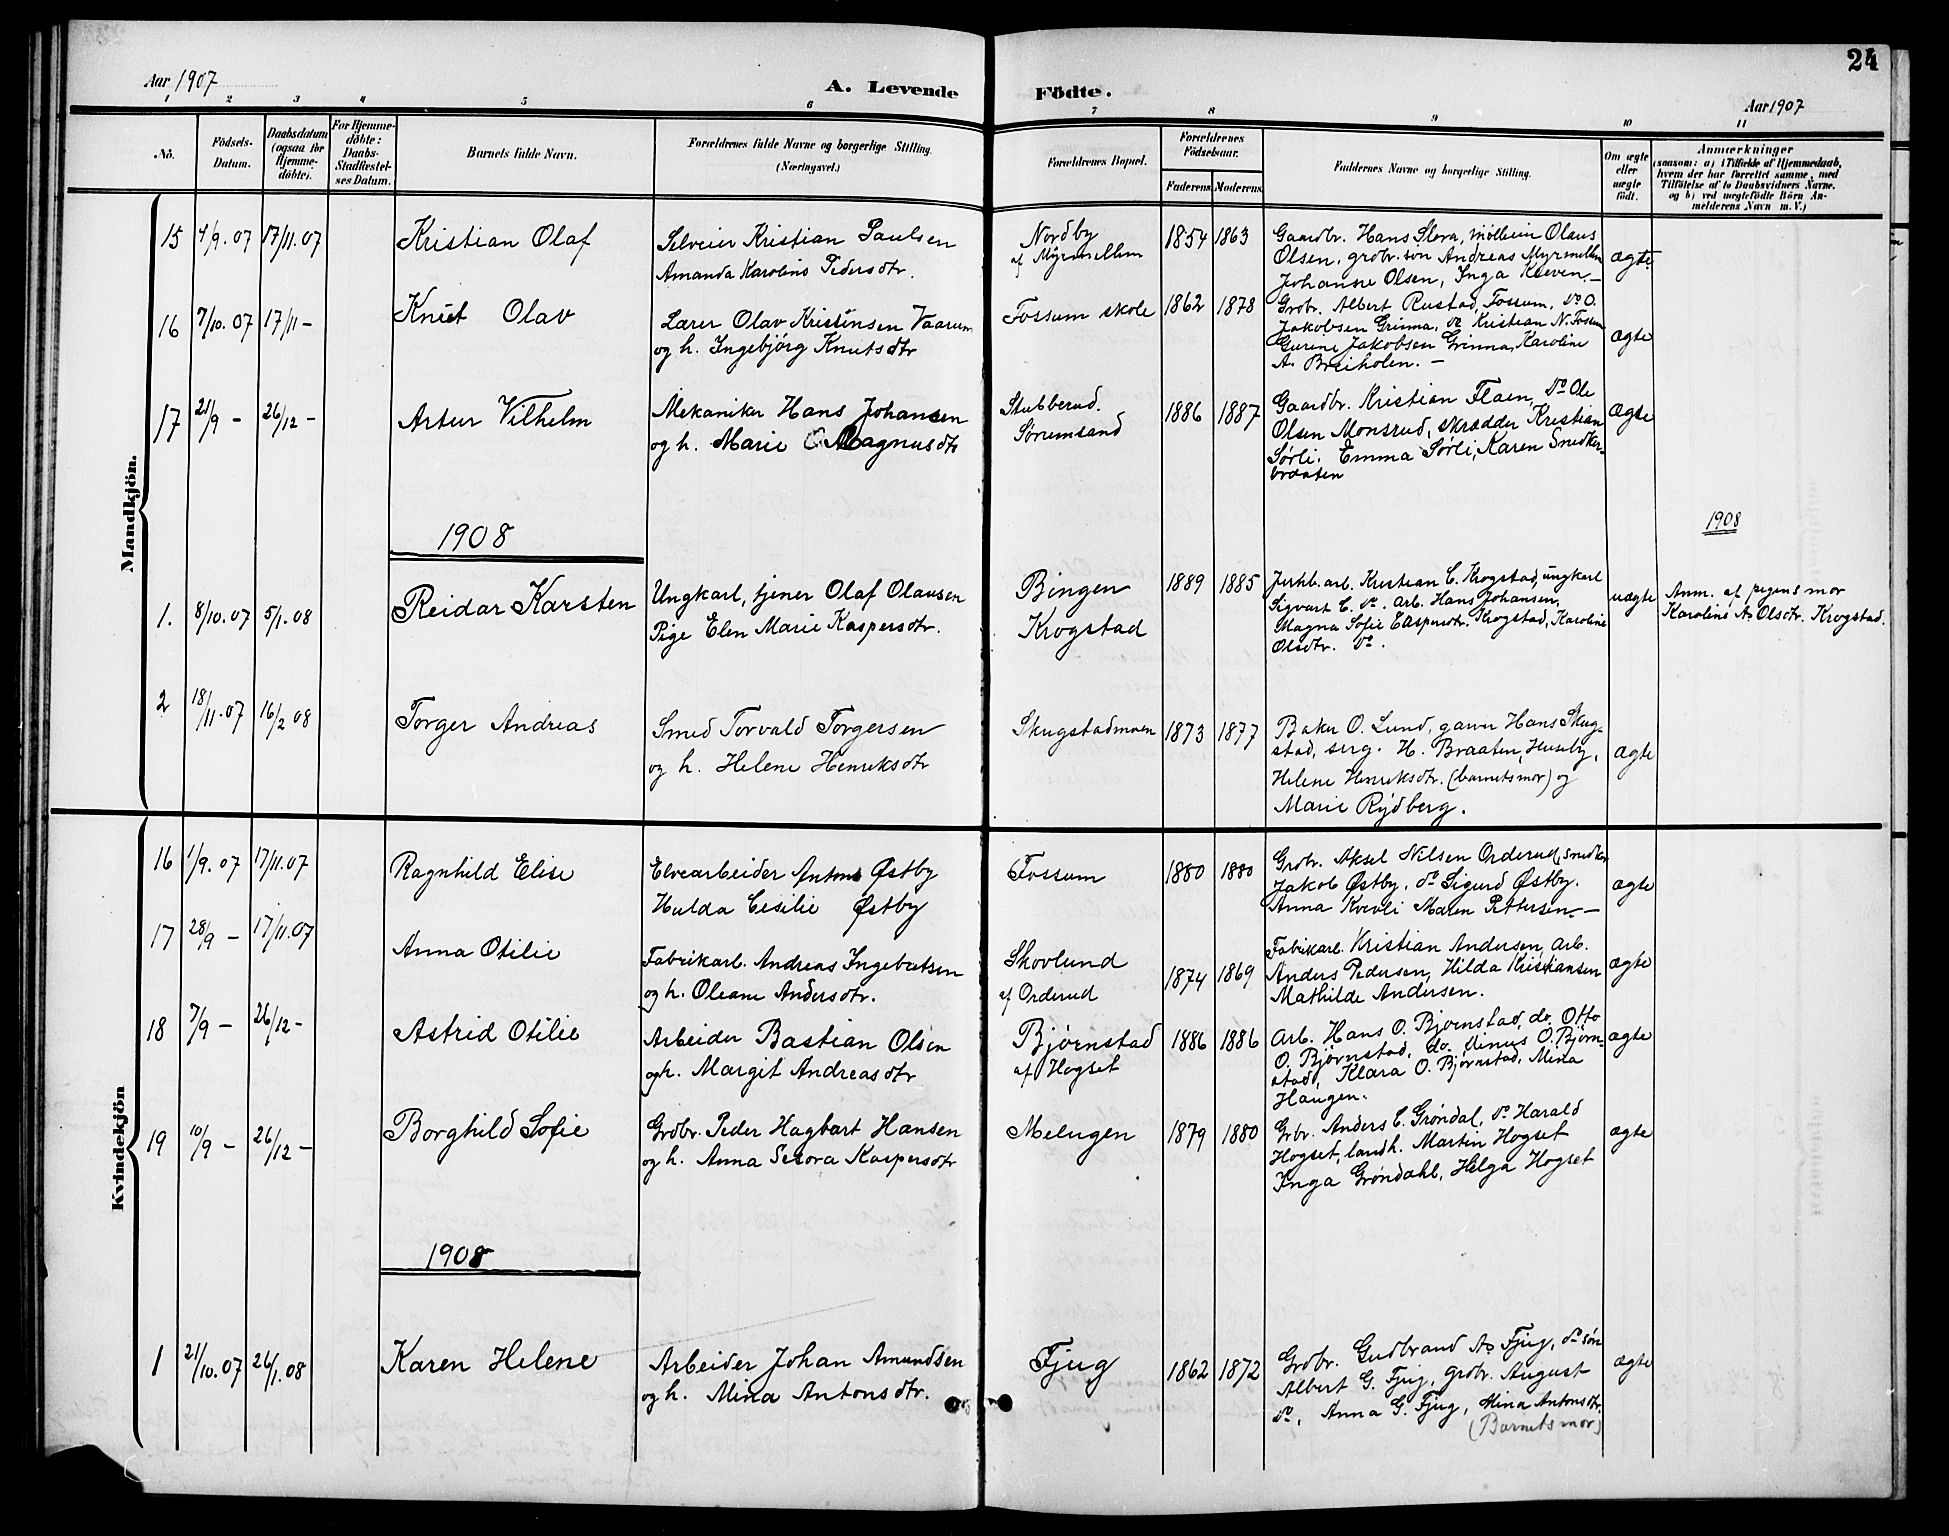 24
Aar 1907
A. Levende
Födte.
Aar 1907
1 2 3 4 5 6 7 8 9 10 11
No.
Födsels-
Datum.
Daabsdatum
(ogsaa for
Hjemme-
döbte).
For Hjemme-
döbte:
Daabs-
Stadfestel-
ses Datum.
Barnets fulde Navn.
Forældrenes fulde Navne og borgerlige Stilling.
(Næringsvei.)
Forældrenes Bopæl.
Forældrenes
Födselsaar.
Faderens. Moderens.
Faddernes Navne og borgerlige Stilling.
Om ægte
eller
uægte
födt.
Anmærkninger
(saasom: a) i Tilfælde af Hjemmedaab,
hvem der har forrettet samme, med
Tilföielse af to Daabsvidners Navne.
og b) ved uægtefödte Börn An-
melderens Navn m. V.)
Mandkjön.
15 4/9. 07 17/11. 07
Kristian Olaf
Selveier Kristian Paulsen
Amanda Karoline Pedersdtr.
Nordby
af Myrmellem
1854 1863
Gaardbr. Hans Slora, Olaus
Olsen, grdbr. søn Andreas Myrmellem
Johanne Olsen, Inga Kleven. —
ægte
16 7/10. 07 17/11 —
Knut Olav
Lærer Olav Kristinsen Vaarum
og h. Ingebjørg Knutsdtr
Fossum skole
1862 1878
Grdbr. Albert Rustad, Fossum, do O.
Jakobsen Grinna, do Kristian N. Fossum
Gurine Jakobsen Grinna, Karoline
A. Breiholen. —
ægte
17 21/9 — 26/12 —
Artur Vilhelm
Mekaniker Hans Johansen
og h. Marie Magnusdtr
Stubberud.
Sørumsand
1886 1887
Gaardbr. Kristian Flaen, do Ole
Olsen Monsrud, skrædder Kristian
Sørli. Emma Sørli, Karen Snedker-
braaten
ægte
1908
1908
1. 8/10. 07 5/1. 08
Reidar Karsten
Ungkarl, tjener Olaf Olausen
Pige Elen Marie Kaspersdtr.
Bingen
Krogstad
1889 1885
Jernb. arb. Kristian C. Krogstad, ungkarl
Sigvart C. do. Arb. Hans Johansen,
Magna Sofie Caspersdtr. Krogstad, Karoline
Olsdtr. do.
uægte
Anm. af pigens mor
Karoline A. Olsdtr. Krogstad.
2 18/11. 07 16/2 08
Torger Andreas
Smed Torvald Torgersen
og h. Helene Henriksdtr
Skugstadmoen
1873 1877
Baker O. Lund, garver Hans Skug-
stad, serg. H. Braaten, Huseby,
Helene Henriksdtr. (barnets mor) og
Marie Rydberg.
ægte
Kvindekjön
16 1/9. 07 17/11. 07
Ragnhild Elise
Elvearbeider Anton Østby
Hulda Cesilie Østby
Fossum
1880 1880
Grdbr. Aksel Nilsen Orderud, snedker
Jakob Østby, do Sigurd Østby.
Anna Kvevli Maren Pettersen. —
ægte
17 28/9 — 17/11. 07
Anna Otilie
Fabrikarb. Andreas Ingebretsen
og h. Oleane Andersdtr.
Skovlund
af Orderud
1874 1869
Fabrikarb. Kristian Andersen, arb.
Anders Pedersen, Hilda Kristiansen
Mathilde Andersen.
ægte
18 7/9 — 26/12 —
Astrid Otilie
Arbeider Bastian Olsen
og h. Margit Andreasdtr
Bjørnstad
af Hogset
1886 1886
Arb. Hans O. Bjørnstad, do. Otto
O. Bjørnstad, do. Dinus O. Bjørn-
stad, Klara O. Bjørnstad, Mina
Haugen.
ægte
19 10/9 — 26/12 —
Borghild Sofie
Grdbr. Peder Hagbart Hansen
og h. Anna Kaspersdtr
Melugen
1879 1880
Grbr. Anders C. Grøndal, do Harald
Hogset, landh. Martin Hogset
Inga Grøndahl, Helga Hogset
ægte
1908
1 21/10. 07 26/1. 08
Karen Helene
Arbeider Johan Amundsen
og h. Mina Antonsdtr.
Fjug
1862 1872
Grdbr. Gudbrand A. Fjug, do søn
Albert G. Fjug, grdbr. August
do, Anna G. Fjug, Mina Antonsdtr.
(Barnets mor)
ægte